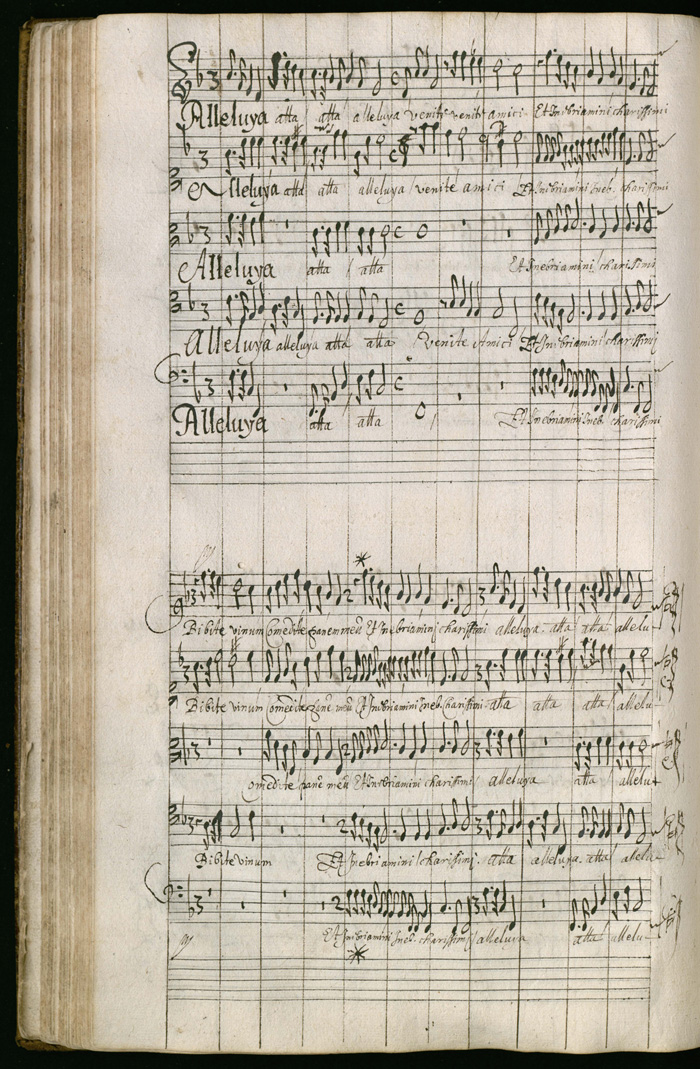 Alleluya atta atta alleluya venite venite amici Et Inebriamini charissimi
Alleluya atta atta alleluya venite amici Et Inibriamini Ineb. charissimi
Alleluya atta atta Et Inebriamini charissimi
Alleluya alleluya atta atta Venite Amici Et Inibriamini charissimj
Alleluya atta atta Et Inebriamini Ineb. charissimi
Bibite vinum Comedite panem meũ Et Inebriaminj charissimi alleluya. atta atta allelu
Bibite vinum Comedite panẽ meũ Et Inibriamini Ineb. Charissimi atta atta atta allelu
omedite panẽ meũ Et Inebriamini charissimi alleluya atta allelu
Bibite vinum Et Inebriamini charissimj. atta alleluya. atta alelu
Et Inibriamini Ineb. charissimj alleluya atta allelu